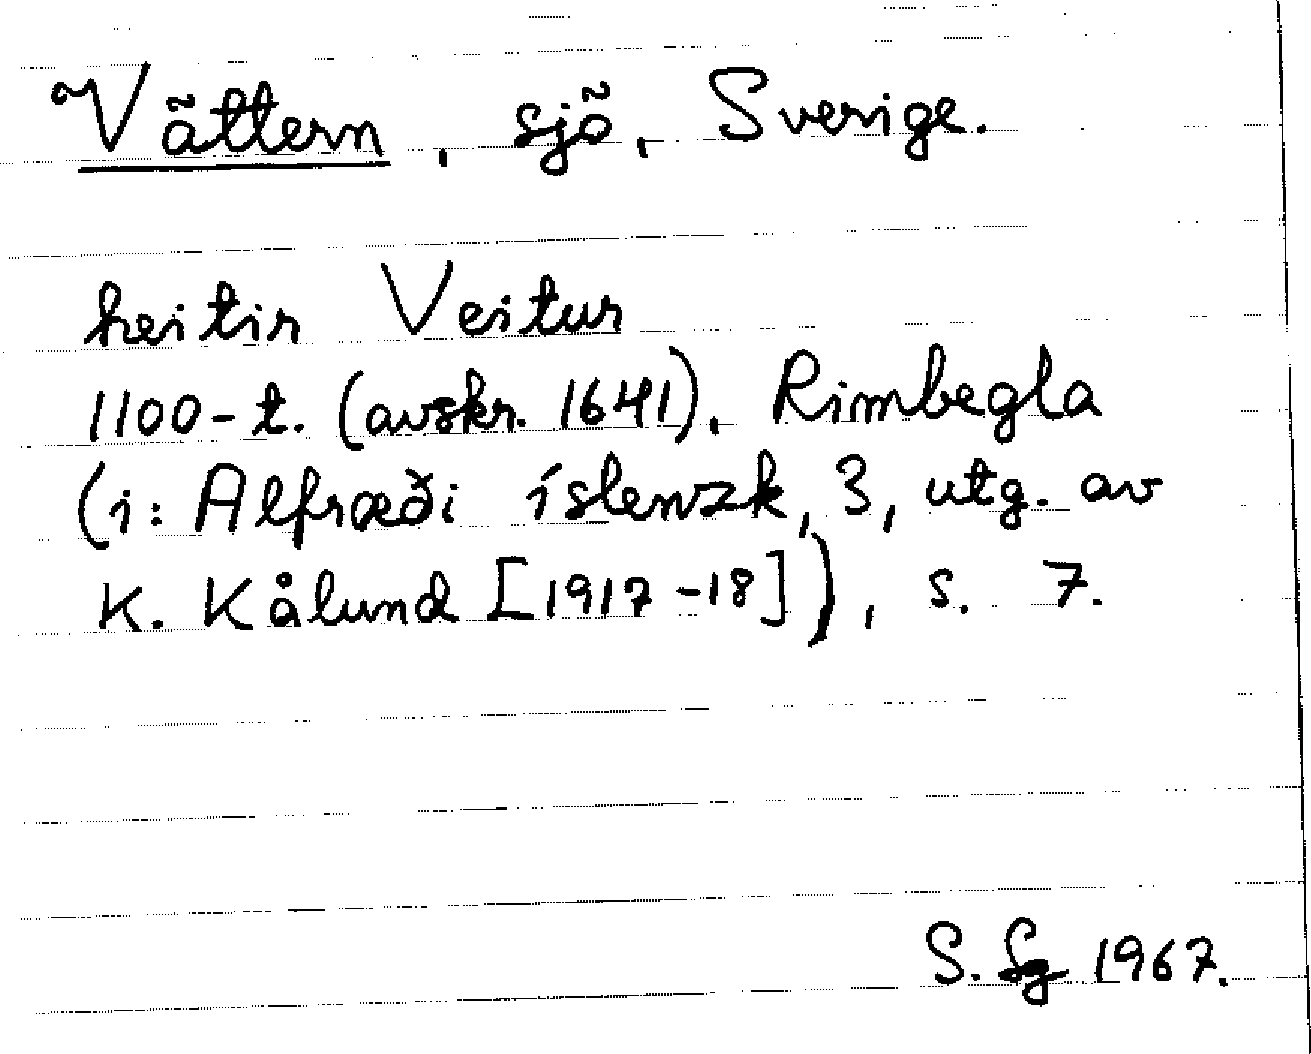 Vättern, sjö, Sverige.
heitir Veitur
1100-t. (avskr. 1641). Rimbegla
(i: Alfræði íslenzk, 3, utg. av
K. Kålund [1917-18]), s. 7.
S. Fg 1967.